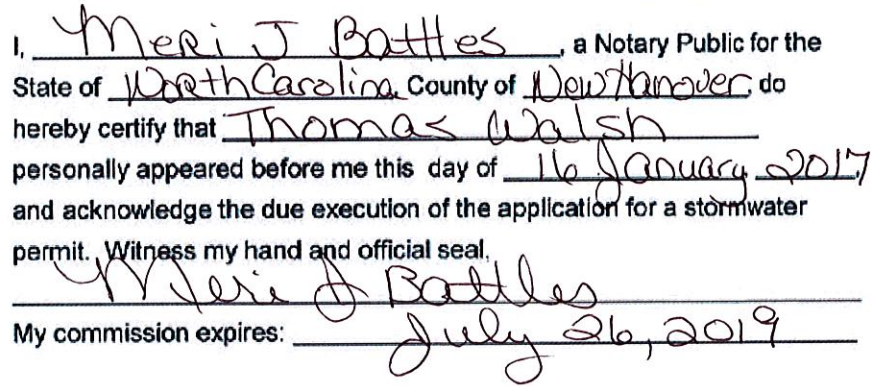 I, Meri J Battles, a Notary Public for the
State of North Carolina, County of New Hanover, do
hereby certify that Thomas Walsh
personally appeared before me this day of 16 January 2017,
and acknowledge the due execution of the application for a stormwater
permit. Witness my hand and official seal,
Meri J Battles
My commission expires: July 26, 2019